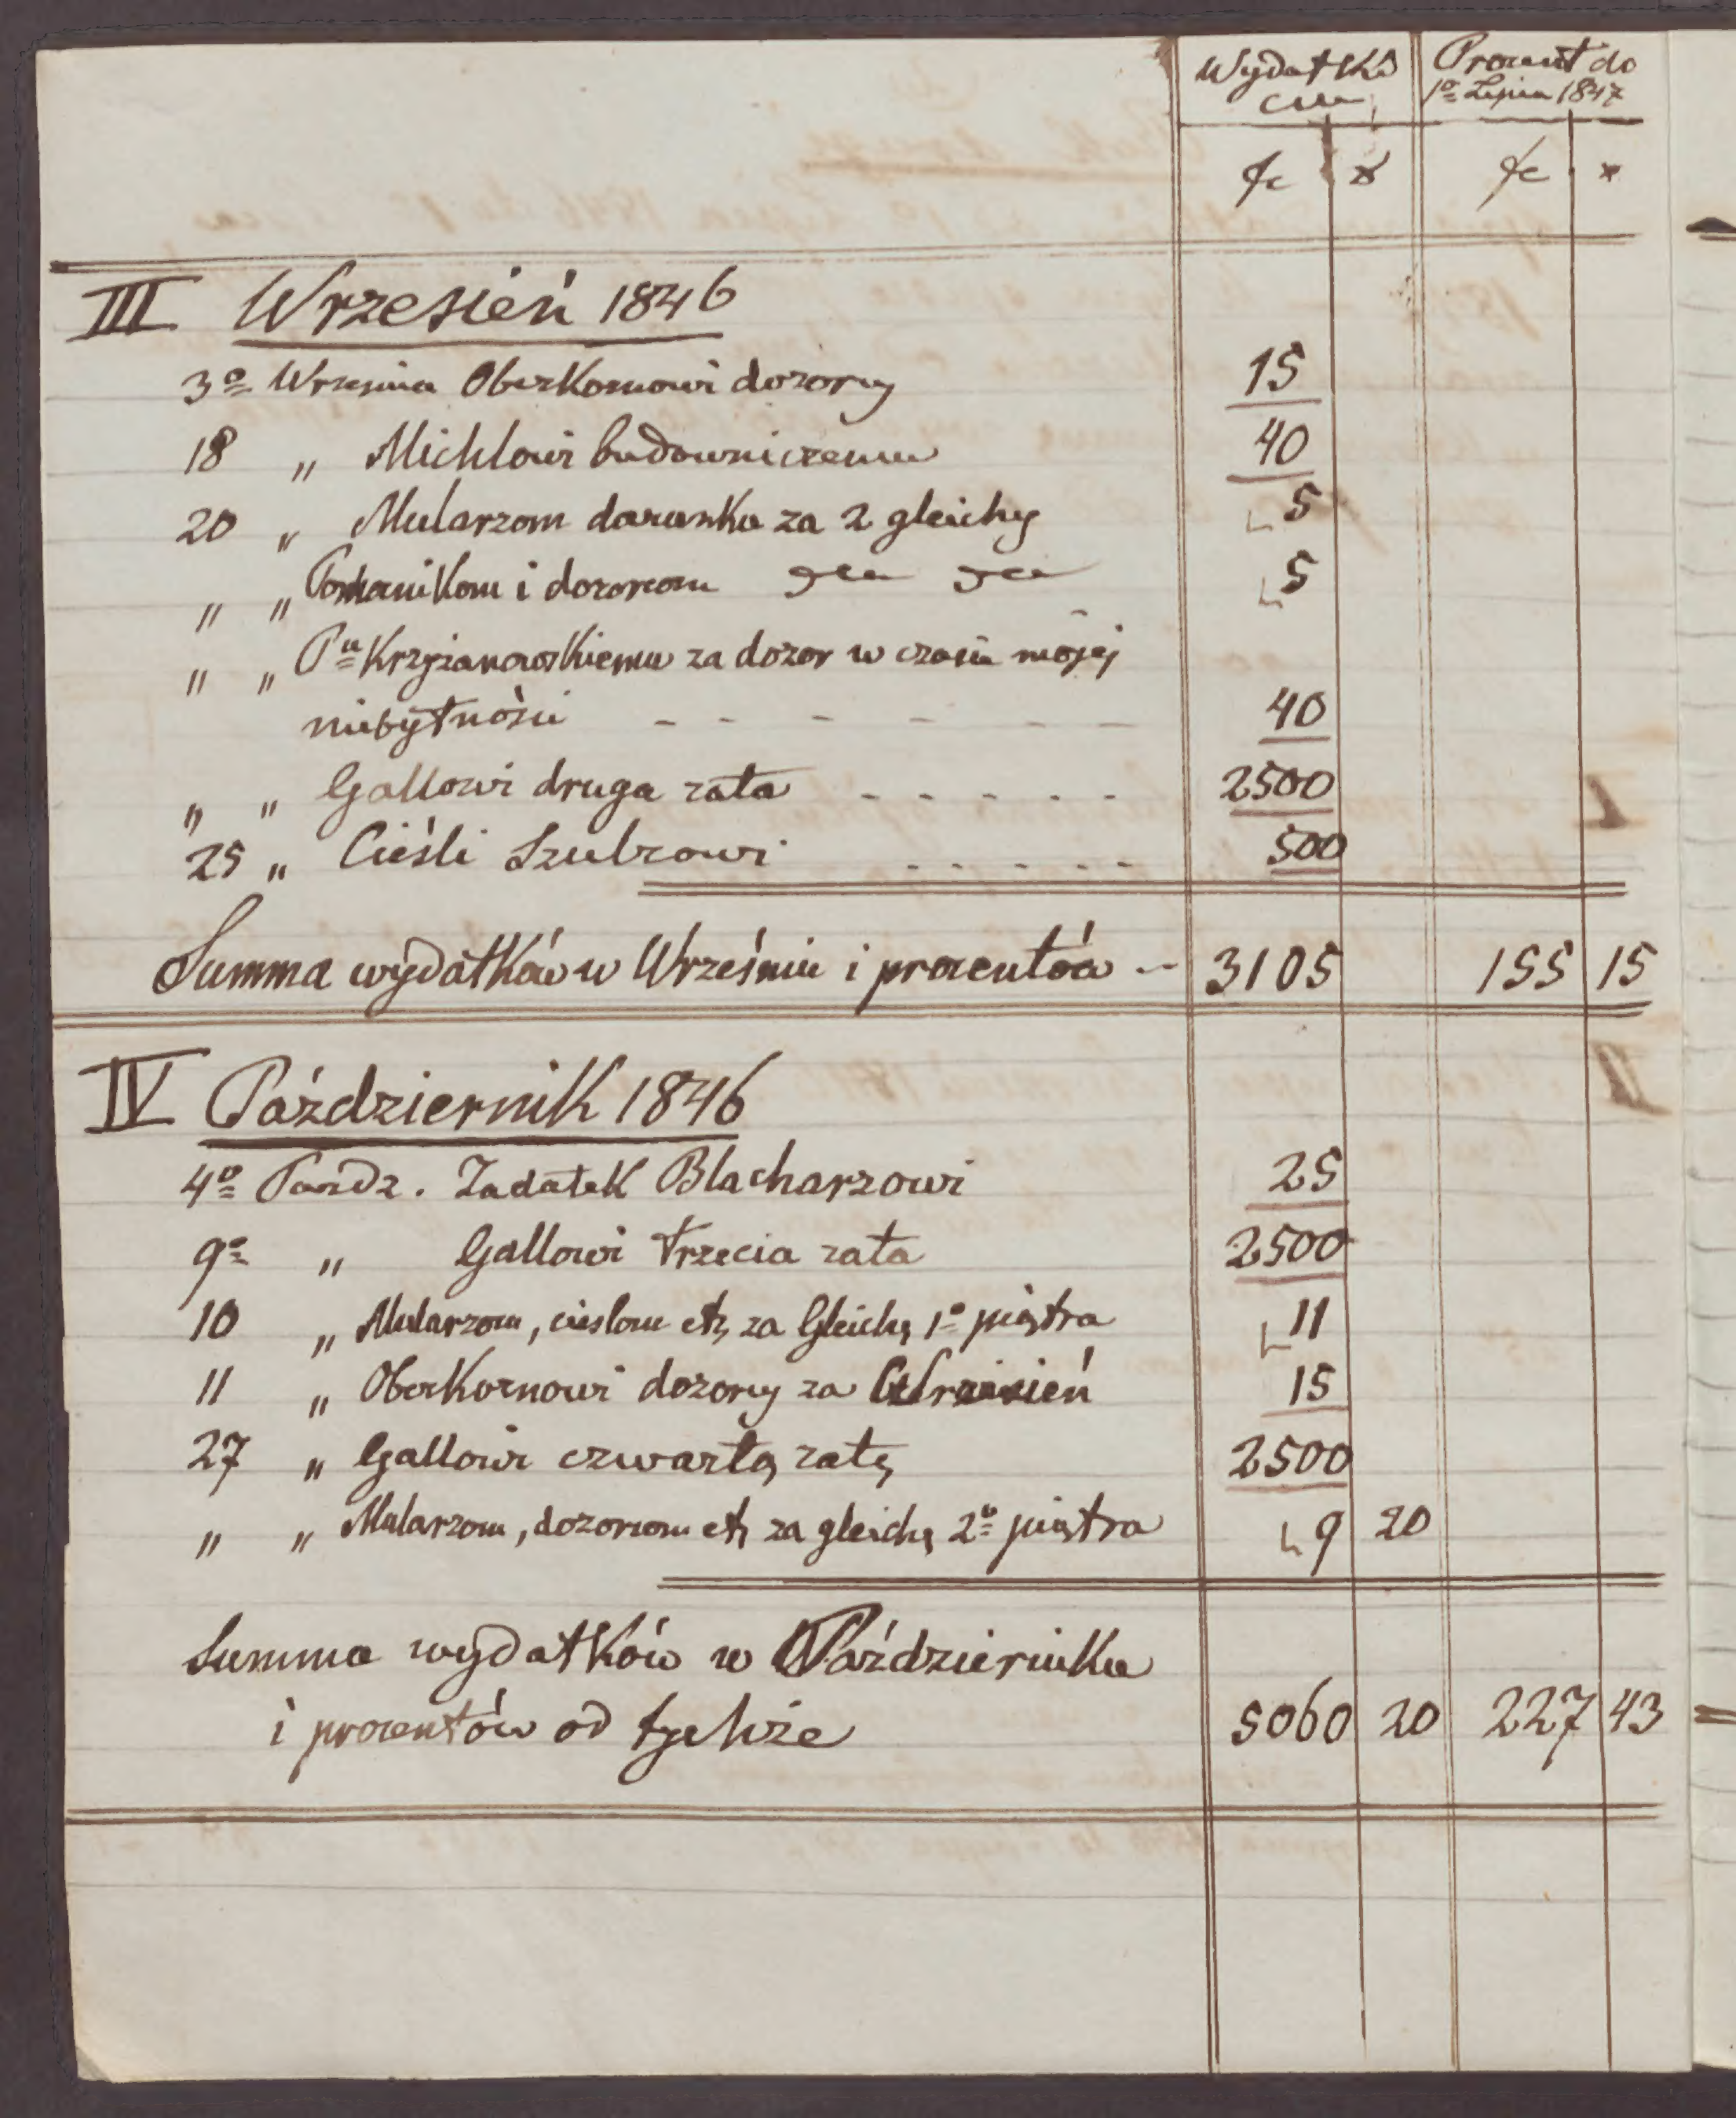 Wydatki Procent do
1º Lipca 1847
fr x fr x
III Wrzesień 1846
3º Września Oberkornowi dozory 15
18 " Michlowi budowniczemu 40
20 " Mularzom darunku za 2 gleichy 5
" " i dozorcom 5
" " Pu Krzyżanowskiemu za dozor w czasie mojéj
niebytności - - - - - - 40
" " Gallowi druga rata - - - - - 2500
25 " Cieśli Szulzowi - - - - - 500
Summa wydatków w Wrześniu i procentów -- 3105 155 15
IV Październik 1846
4º Pazdz. Zadatek Blacharzowi 25
9º " Gallowi trzecia rata 2500
10 " Mularzom, cieslom etc za Gleichę 1º piętra 11
11 " Oberkornowi dozory za Wrzesień 15
27 " Gallowi czwartą ratę 2500
" " Mularzom, dozorcom etc za gleichę 2º piętra 9 20
Summa wydatków w Październiku
i procentów od tychże 5060 20 227 43